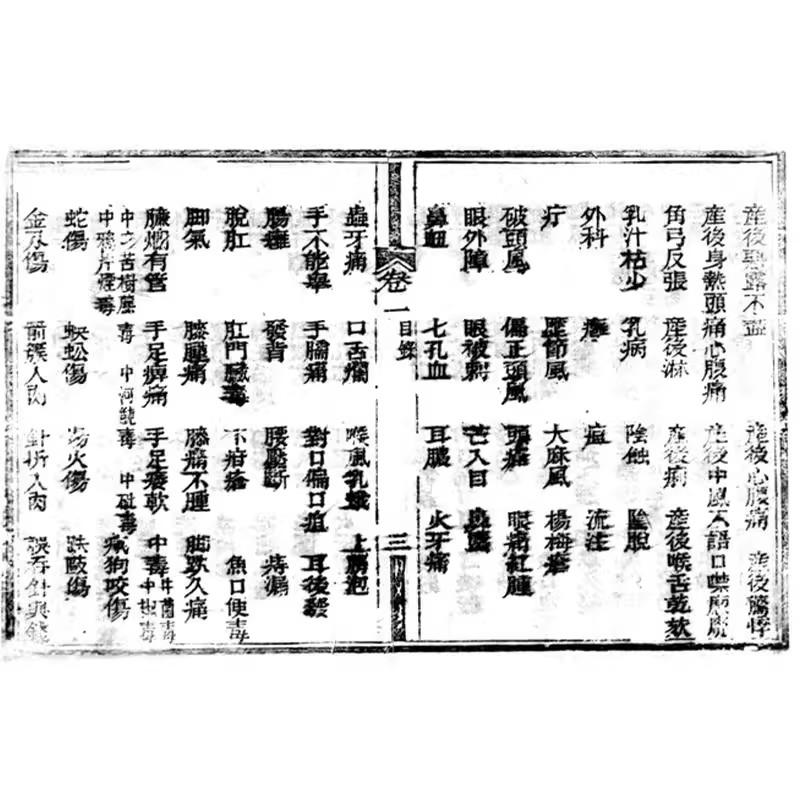 產後惡露不盡 產後心腹痛 產後驚悸
產後身熱頭痛心腹痛 產後中風不語口噤
角弓反張 產後淋 產後痢 產後喉舌乾
乳汁枯少 乳病 陰蝕 陰脫
外科 疽 流注
疔 歷節風 大麻風 楊梅瘡
破頭風 偏正頭風 頭瘡 眼痛紅腫
眼外障 眼被 芒入目
鼻衄 七孔血 耳膿 火牙痛
卷一 目錄 三
蟲牙痛 口舌爛 喉風乳蛾 上腭泡
手不能舉 手臑痛 對口偏口疽 耳後發
腸癰 發背 痔漏
脫肛 肛門臟毒 不疳瘡 魚口便毒
腳氣 膝腫痛 膝痛不腫 腳跌久痛
臁爛有管 手足痺痛 手足痿軟 中毒
中鴉片煙毒 中砒毒 瘋狗咬傷
蛇傷 蜈蚣傷 湯火傷 跌
金刃傷 箭簇入肉 針折入肉 誤吞針